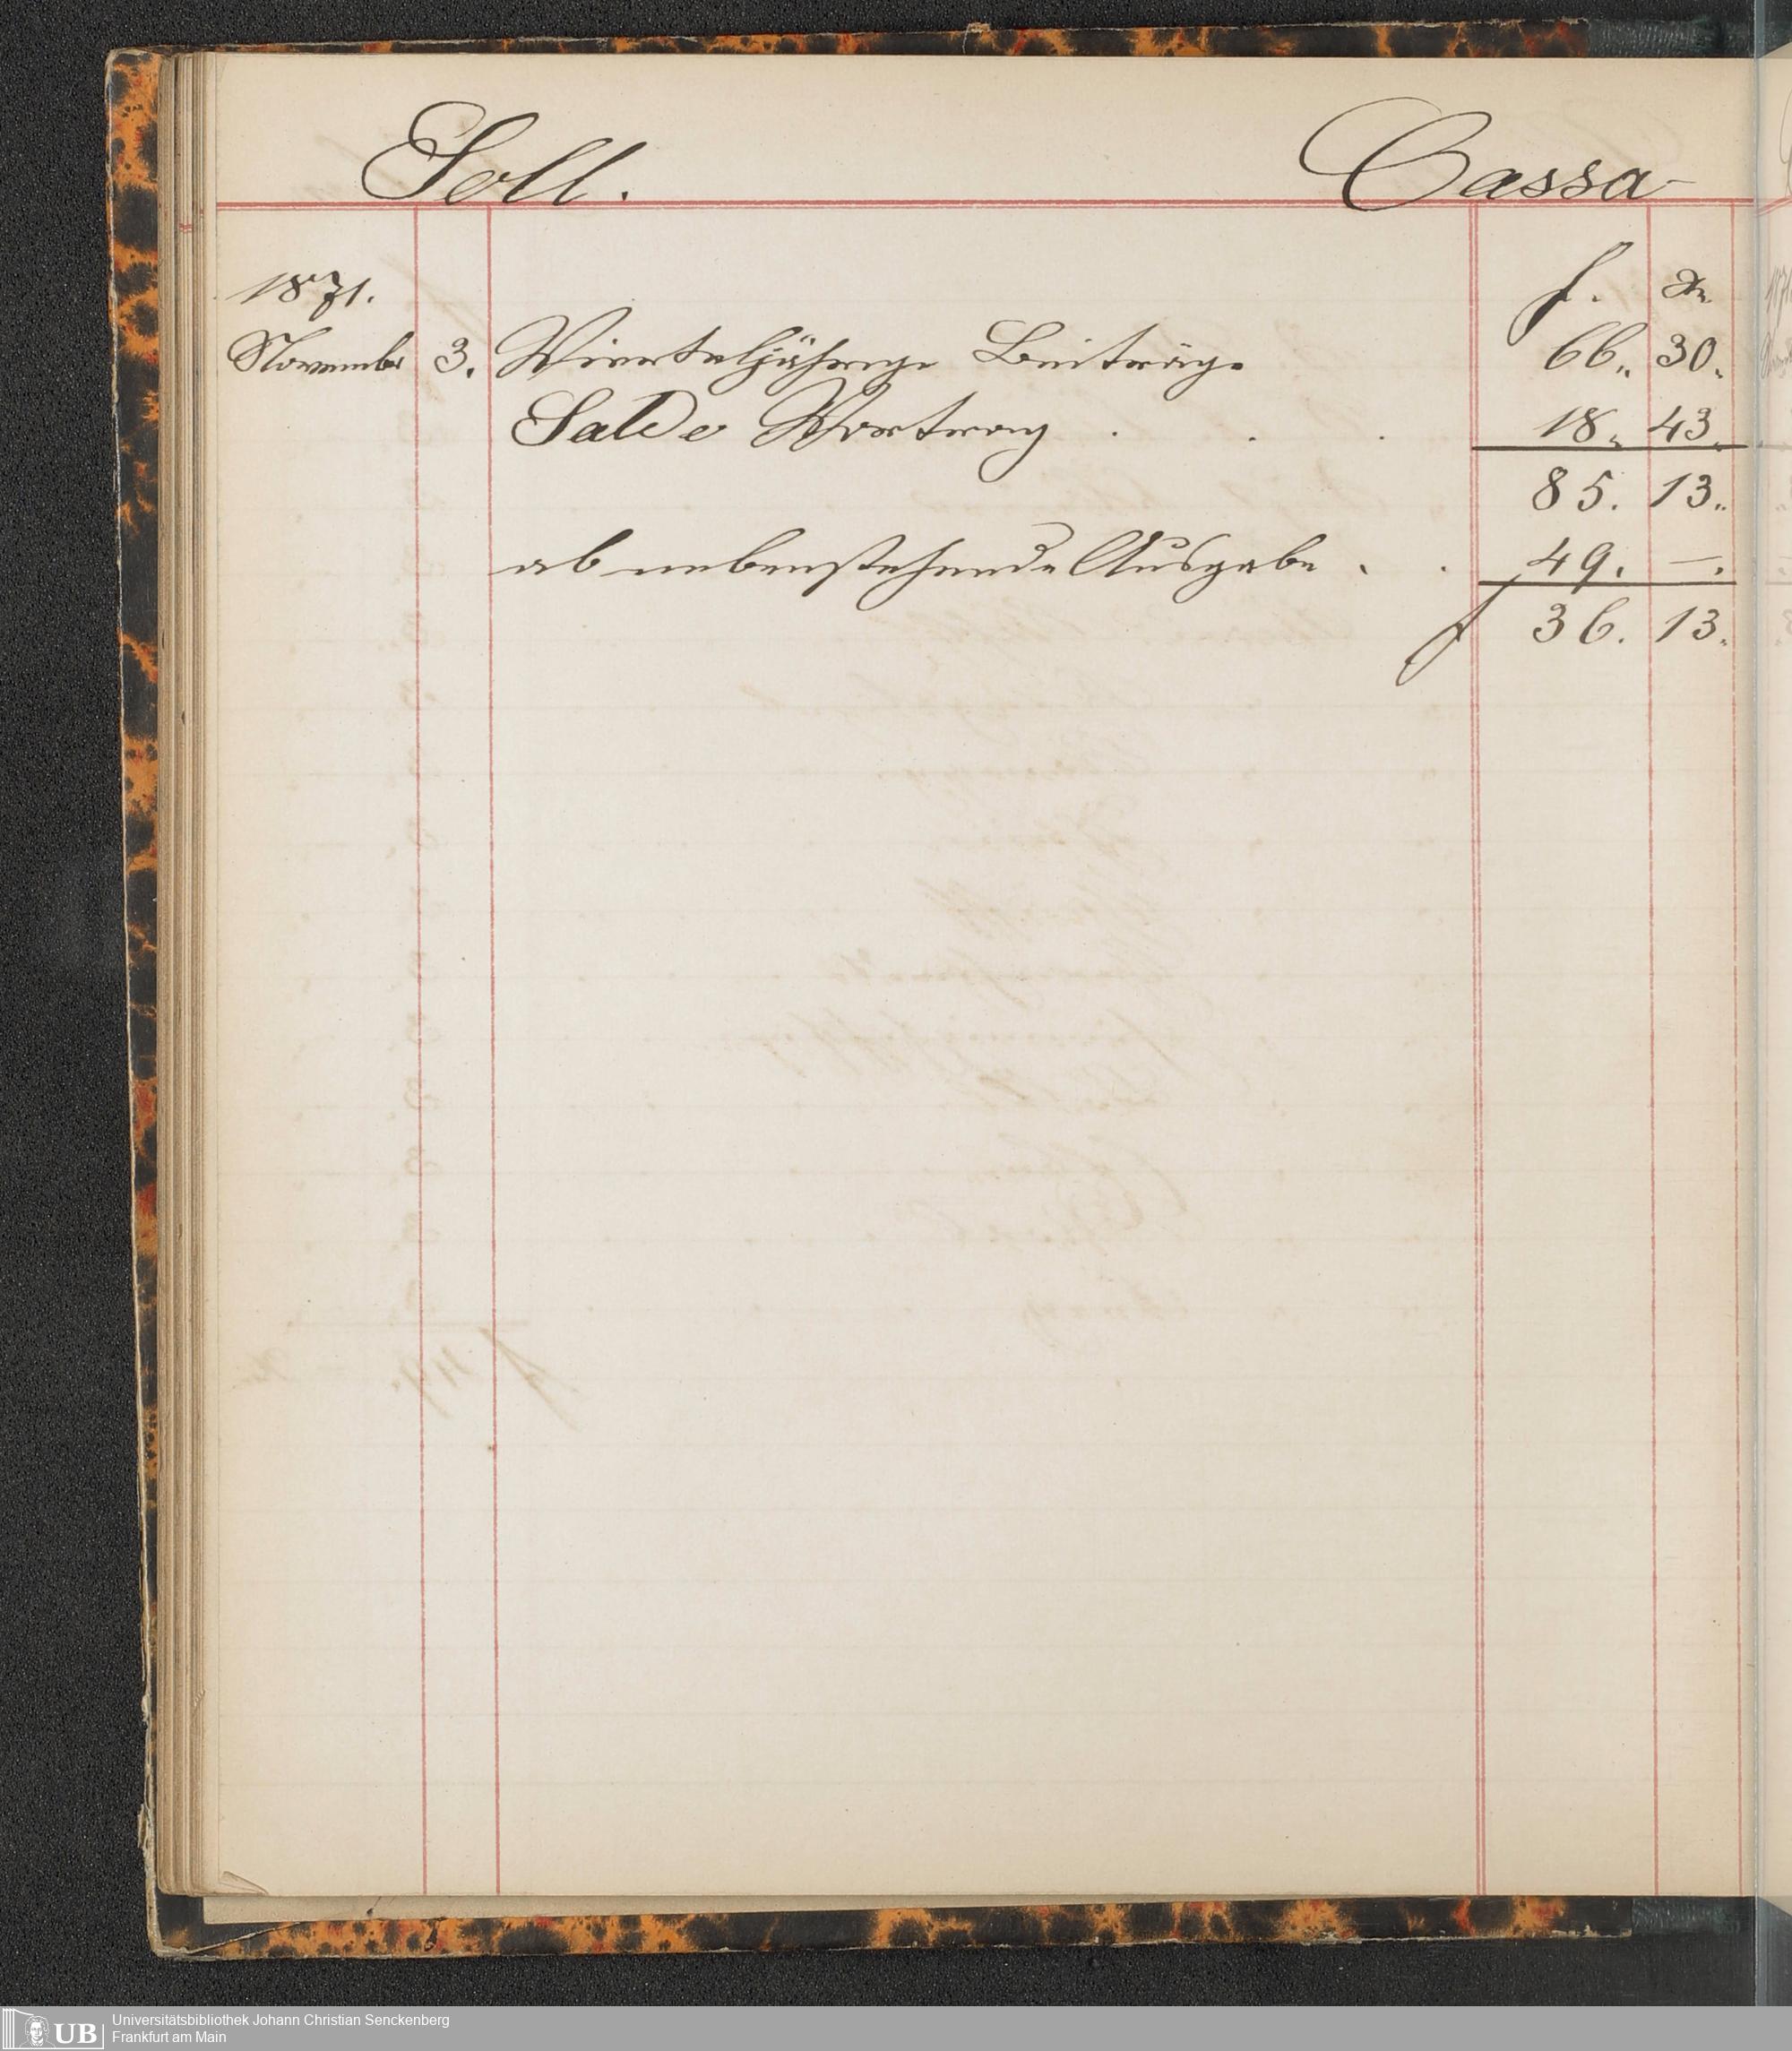 Soll. Cassa
1871. f. xr.
November 3. Vierteljährige Beiträge 66.. 30.
Saldo Vortrag . . . 18. 43.
85. 13..
ab nebenstehende Ausgabe . . 49. —.
f 36. 13.
UB Universitätsbibliothek Johann Christian Senckenberg
Frankfurt am Main